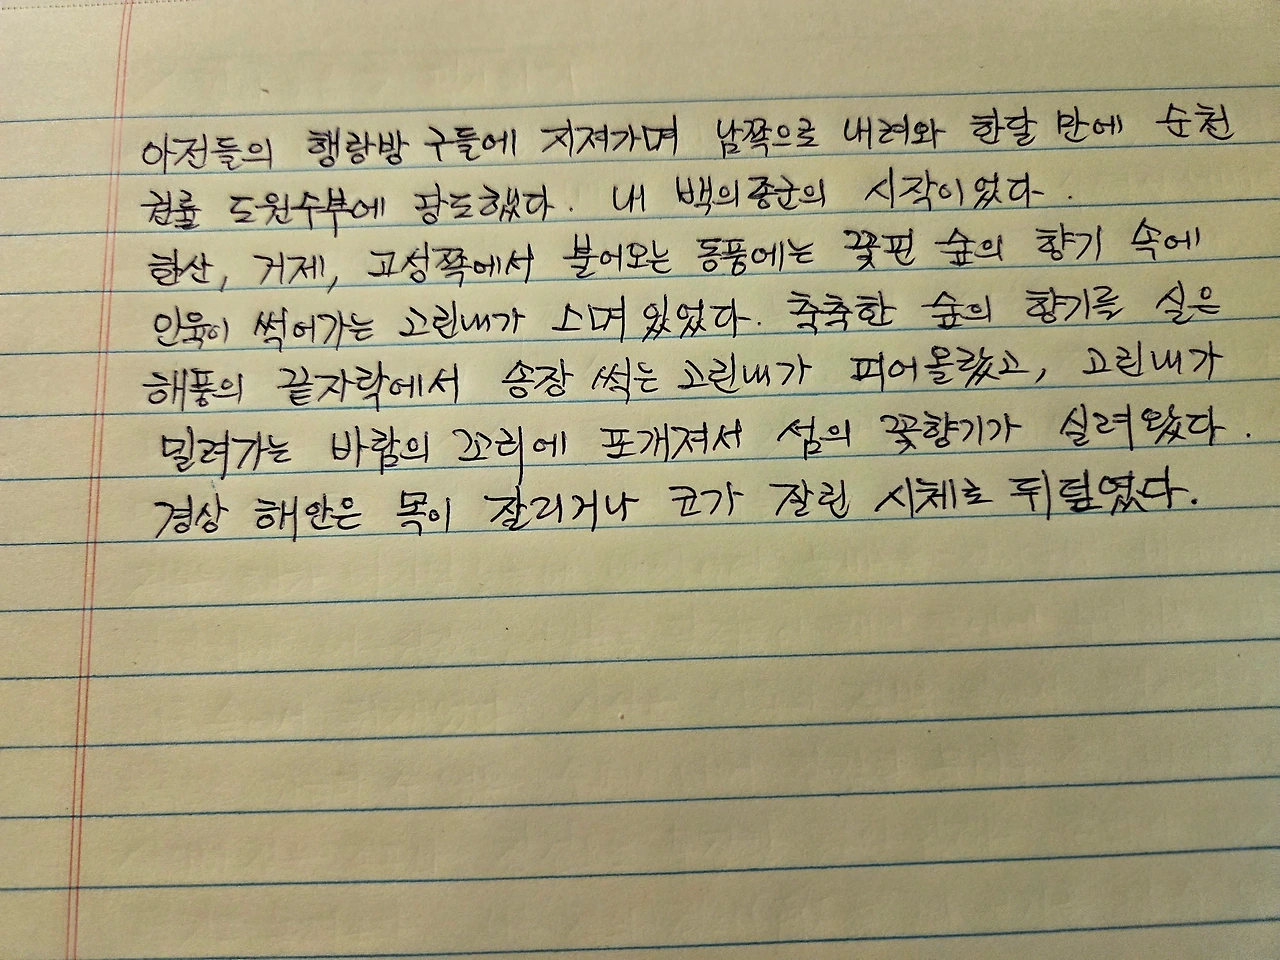 아전들의 행랑방 구들에 지져가며 남쪽으로 내려와 한달 만에 순천
권률 도원수부에 당도했다. 내 백의종군의 시작이었다.
한산, 거제, 고성쪽에서 불어오는 동풍에는 꽃핀 숲의 향기 속에
인육이 썩어가는 고린내가 스며있었다. 축축한 숲의 향기를 실은
해풍의 끝자락에서 송장 썩는 고린내가 피어올랐고, 고린내가
밀려가는 바람의 꼬리에 포개져서 섬의 꽃향기가 실려왔다.
경상 해안은 목이 잘리거나 코가 잘린 시체로 뒤덮였다.